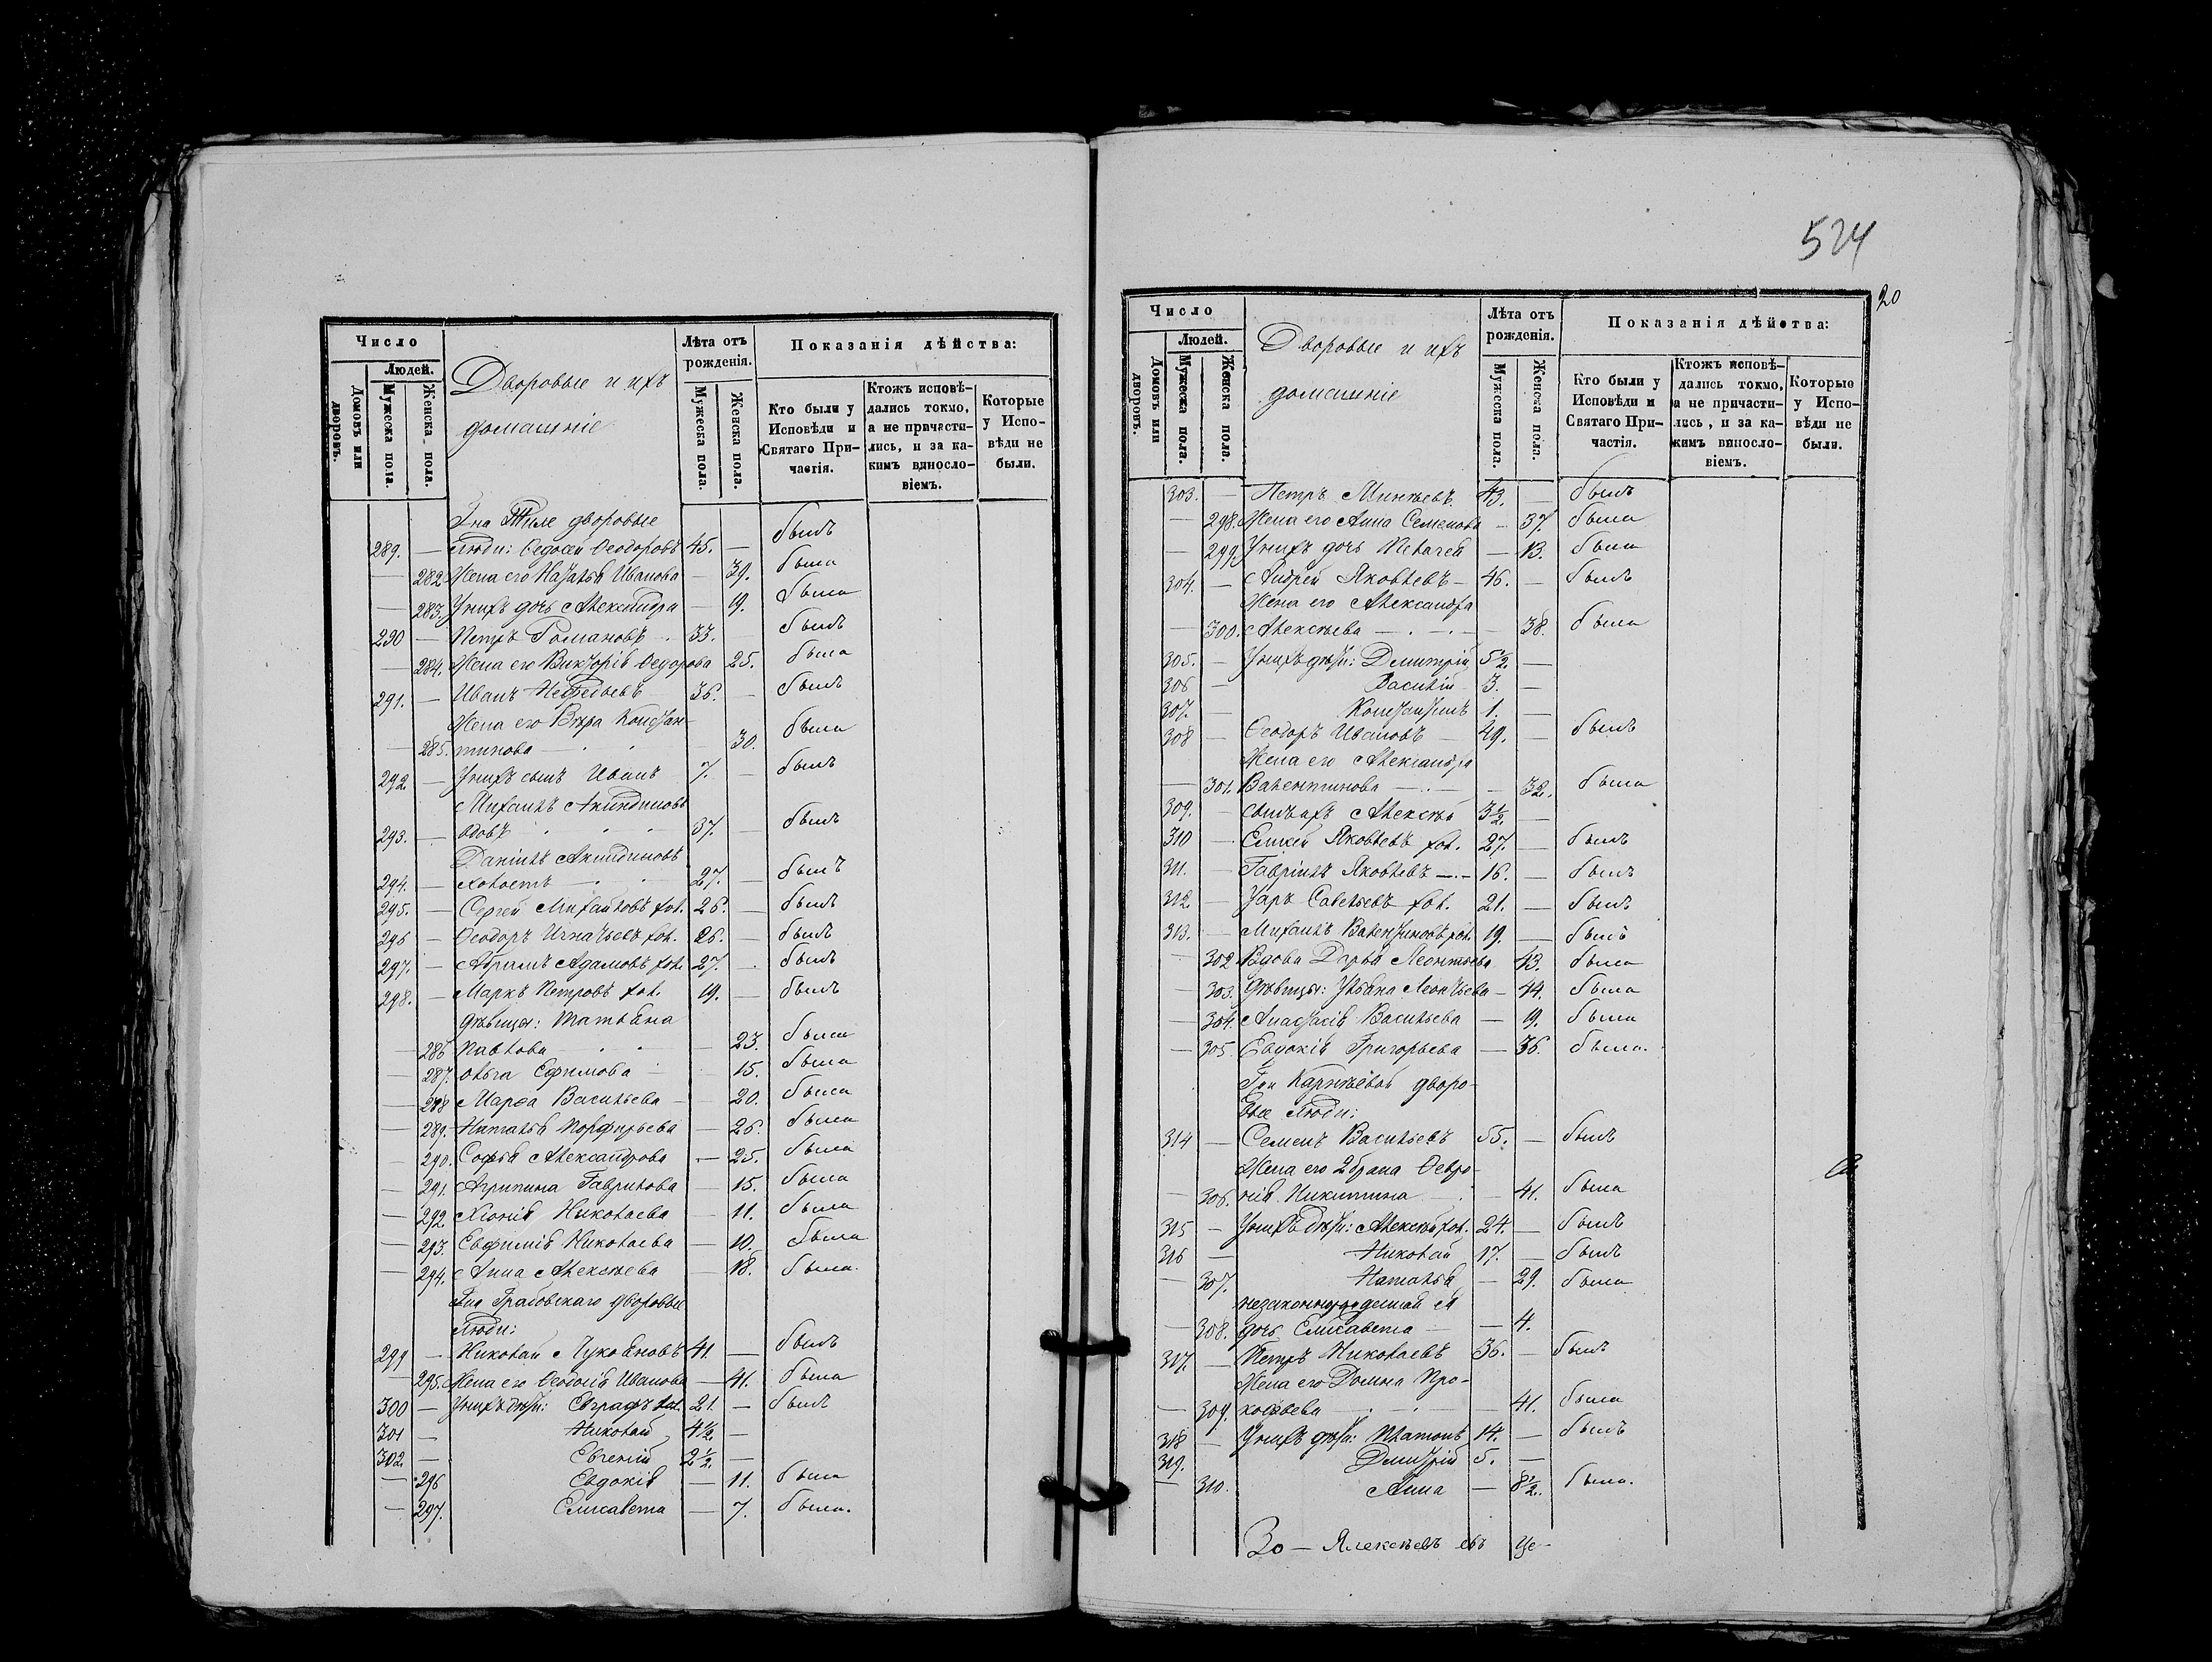 Число
Людей.
Домовъ или дворовъ.
Мужеска пола.
Женска пола.
Дворовые и ихъ
домашніе
Лѣта отъ
рожденія.
Мужеска пола.
Женска пола.
Показанія дѣйства:
Кто были у
Исповѣди и
Святаго При-
частія.
Ктожъ исповѣ-
дались токмо,
а не причасти-
лись, и за ка-
кимъ виносло-
віемъ.
Которые
у Испо-
вѣди не
были.
Гна Тиле дворовые
289. — люди: Ѳедосей Ѳеодоровъ 45. — былъ
— 282. Жена его Наталья Иванова — 39. была
— 283. У нихъ дочь Александра — 19. была
290 — Петръ Романовъ 33. — былъ
— 284. Жена его Викторія Ѳедорова 25. была
291. — Иванъ Нефедьевъ 36. — былъ
Жена его Вѣра Констан-
— 285. тинова 30. была
292 — У нихъ сынъ Иванъ 7. — былъ
Михаилъ Акиндиновъ
293. — вдовъ 37. былъ
Даніилъ Акиндиновъ
294. — холостъ 27. — былъ
295. — Сергей Михайловъ хол. 26. — былъ
296 — Ѳеодоръ Игнатьевъ хол. 26. — былъ
297. — Абрамъ Адамовъ хол. 27. — былъ
298. — Маркъ Петровъ хол. 19. — былъ
Дѣвицы: Татьяна
— 286 Павлова — 23. была
— 287. Ольга Ефимова 15. была
— 288 Марѳа Васильева — 20. была
— 289. Наталья Порфирьева — 26. была
— 290. Софья Александрова — 25. была
— 291. Агрипина Гаврилова — 15. была
— 292. Хіонія Николаева — 11. была
— 293. Евфимія Николаева — 10. была
— 294. Анна Алексѣева — 18. была.
Гна Грабовскаго дворовые
люди:
299 — Николай Лукьяновъ 41. — былъ
— 295. Жена его Ѳеодосія Иванова — 41. была
300 — У нихъ дѣти: Евграфъ хол. 21. — былъ
301 — Николай 4½. —
302. — Евгеній 2½. —
— 296 Евдокія — 11. была
— 297. Елисавета — 7. была.
524
20
Число
Людей.
Домовъ или дворовъ.
Мужеска пола.
Женска пола.
Дворовые и ихъ
домашніе
Лѣта отъ
рожденія.
Мужеска пола.
Женска пола.
Показанія дѣйства:
Кто были у
Исповѣди и
Святаго При-
частія.
Ктожъ исповѣ-
дались токмо,
а не причасти-
лись, и за ка-
кимъ винослo-
віемъ.
Которые
у Испо-
вѣди не
были.
303. — Петръ Минѣевъ 43. — былъ
— 298. Жена его Анна Семенова — 37. была
— 299. У нихъ дочь Пелагея — 13. была
304. — Андрей Яковлевъ — 46. — былъ
Жена его Александра
— 300. Алексѣева — 38. была
305. — У нихъ дѣти: Димитрій 5½. —
306 — Василій 3. —
307. — Константинъ 1. —
308 — Ѳеодоръ Ивановъ — 49. — былъ
Жена его Александра
— 301. Валентинова — 32. была
309. — сынъ ихъ Алексѣй 3½. —
310 — Елисей Яковлевъ хол. 27. — былъ
311. — Гавріилъ Яковлевъ — 16. — былъ
312. — Уаръ Савельевъ хол. 21. — былъ
313. — Михаилъ Валентиновъ хол. 19. — былъ
302. Вдова Дарья Леонтьева 43. была
— 303. Дѣвицы: Ульяна Леонтьева — 44. была
— 304. Анастасія Васильева — 19. была
— 305. Евдокія Григорьева — 36. была.
Гжи дворо-
вые люди:
314 — Семенъ Васильевъ 55. — былъ
Жена его 2 брака Ѳевро-
— 306. нія Никитина — 41. была
315 — У нихъ дѣти: Алексѣй хол. 24. — былъ
316 — Николай 17. — былъ
— 307. Наталья — 29. была
незаконнорожденная ея
— 308. дочь Елисавета — 4.
317. — Петръ Николаевъ 36. — былъ
Жена его Домна Про-
— 309. кофьева — 41. была
318 — У нихъ дѣти: Платонъ 14. — былъ
319. Дмитрій 5. —
— 310. Анна — 8½. была.
Алексѣевъ